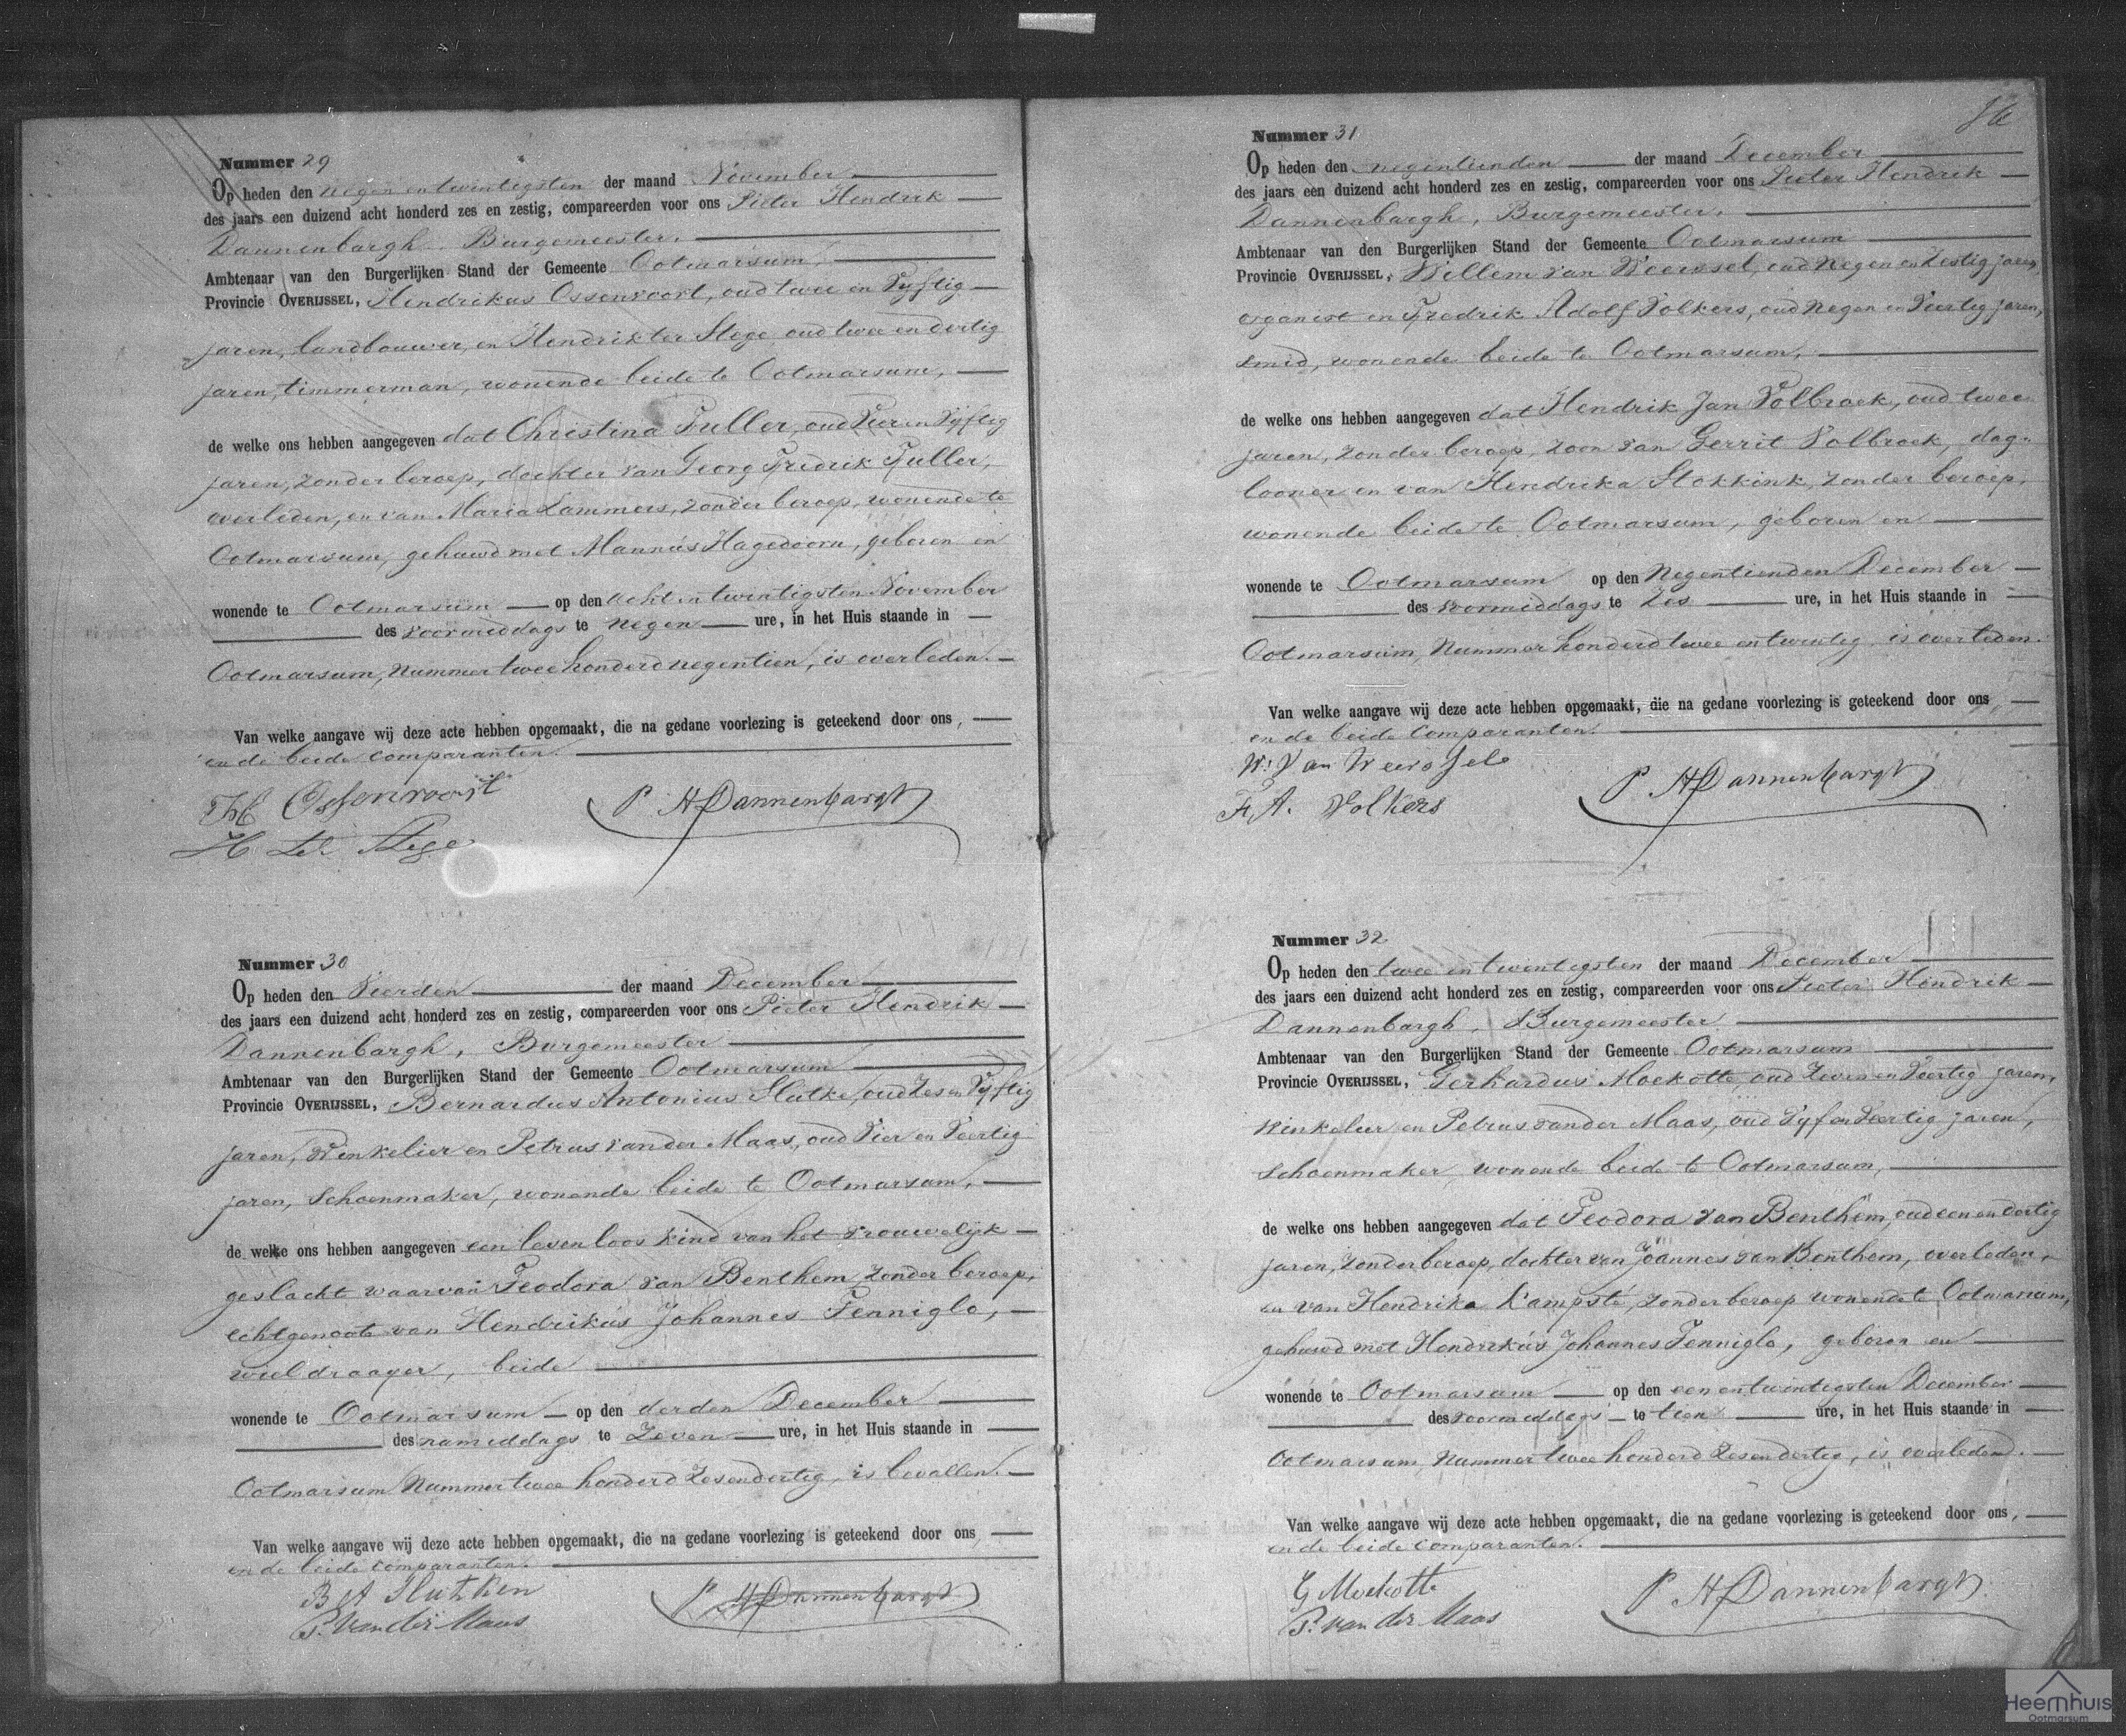 Nummer 29
Op heden den negen en twintigsten der maand November
des jaars een duizend acht honderd zes en zestig, compareerden voor ons Pieter Hendrik
Dannenbargh, Burgemeester.
Ambtenaar van den Burgerlijken Stand der Gemeente Ootmarsum,
Provincie OVERIJSSEL, Hendrikus Ossenvoort, oud twee en Vyftig
jaren, landbouwer, en Hendrik ter Stege, oud twee en dertig
jaren, timmerman, wonende beide te Ootmarsum,
de welke ons hebben aangegeven dat Christina Fuller, oud Vier en Vyftig
jaren, zonder beroep, dochter van Georg Fredrik Fuller,
overleden, en van Maria Lammers, zonder beroep, wonende te
Ootmarsum, gehuwd met Mannus Hagedoorn, geboren en
wonende te Ootmarsum op den acht en twintigsten November
des voormiddags te negen ure, in het Huis staande in
Ootmarsum, nummer twee honderd negentien, is overleden.
Van welke aangave wij deze acte hebben opgemaakt, die na gedane voorlezing is geteekend door ons,
en de beide comparanten.
Ossenvoort
H ter Stege
P H Dannenbargh
Nummer 30
Op heden den Vierden der maand December
des jaars een duizend acht honderd zes en zestig, compareerden voor ons Pieter Hendrik
Dannenbargh, Burgemeester
Ambtenaar van den Burgerlijken Stand der Gemeente Ootmarsum
Provincie OVERIJSSEL, Bernardus Antonius Slutke, oud Zes en Vyftig
jaren, Winkelier en Petrus van der Maas, oud Vier en Veertig
jaren, Schoenmaker, wonende beide te Ootmarsum,
de welke ons hebben aangegeven een levenloos kind van het vrouwelijk
geslacht waarvan Feodora van Benthem, zonder beroep,
echtgenoote van Hendrikus Johannes Fenniglo,
wieldraayer, beide
wonende te Ootmarsum op den derden December
des namiddags te Zeven ure, in het Huis staande in
Ootmarsum Nummer twee honderd Zesendertig, is bevallen.
Van welke aangave wij deze acte hebben opgemaakt, die na gedane voorlezing is geteekend door ons
en de beide comparanten.
B A Slutken
P. van der Maas
P H Dannenbargh
Nummer 31
Op heden den negentienden der maand December
des jaars een duizend acht honderd zes en zestig, compareerden voor ons Pieter Hendrik
Dannenbargh, Burgemeester,
Ambtenaar van den Burgerlijken Stand der Gemeente Ootmarsum
Provincie OVERIJSSEL, Willem van Weerssel, oud Negen en Zestig jaren,
organist en Fredrik Adolf Volkers, oud Negen en Veertig jaren,
smid, wonende beide te Ootmarsum,
de welke ons hebben aangegeven dat Hendrik Jan Volbroek, oud twee
jaren, zonder beroep, zoon van Gerrit Volbroek, dag-
looner en van Hendrika Stokkink, zonder beroep,
wonende beide te Ootmarsum, geboren en
wonende te Ootmarsum op den Negentienden December
des voormiddags te Zes ure, in het Huis staande in
Ootmarsum, Nummer honderd twee en twintig, is overleden.
Van welke aangave wij deze acte hebben opgemaakt, die na gedane voorlezing is geteekend door ons
en de beide comparanten.
W: Van Weerssele
F. A. Volkers
P H Dannenbargh
Nummer 32
Op heden den twee en twentigsten der maand December
des jaars een duizend acht honderd zes en zestig, compareerden voor ons Pieter Hendrik
Dannenbargh, Burgemeester
Ambtenaar van den Burgerlijken Stand der Gemeente Ootmarsum
Provincie OVERIJSSEL, Gerhardus Moekotte, oud Zeven en Veertig jaren,
Winkelier en Petrus van der Maas, oud Vyf en Veertig jaren,
Schoenmaker, wonende beide te Ootmarsum,
de welke ons hebben aangegeven dat Feodora van Benthem, oud een en dertig
jaren, zonder beroep, dochter van Joannes van Benthem, overleden,
en van Hendrika Kampste, zonder beroep wonende te Ootmarsum,
gehuwd met Hendrikus Johannes Fenniglo, geboren en
wonende te Ootmarsum op den een en twintigsten December
des voormiddags te tien ure, in het Huis staande in
Ootmarsum, Nummer twee honderd Zesendertig, is overleden.
Van welke aangave wij deze acte hebben opgemaakt, die na gedane voorlezing is geteekend door ons,
en de beide comparanten.
G Moekotte
P. van der Maas
P H Dannenbargh
Heemhuis
Ootmarsum